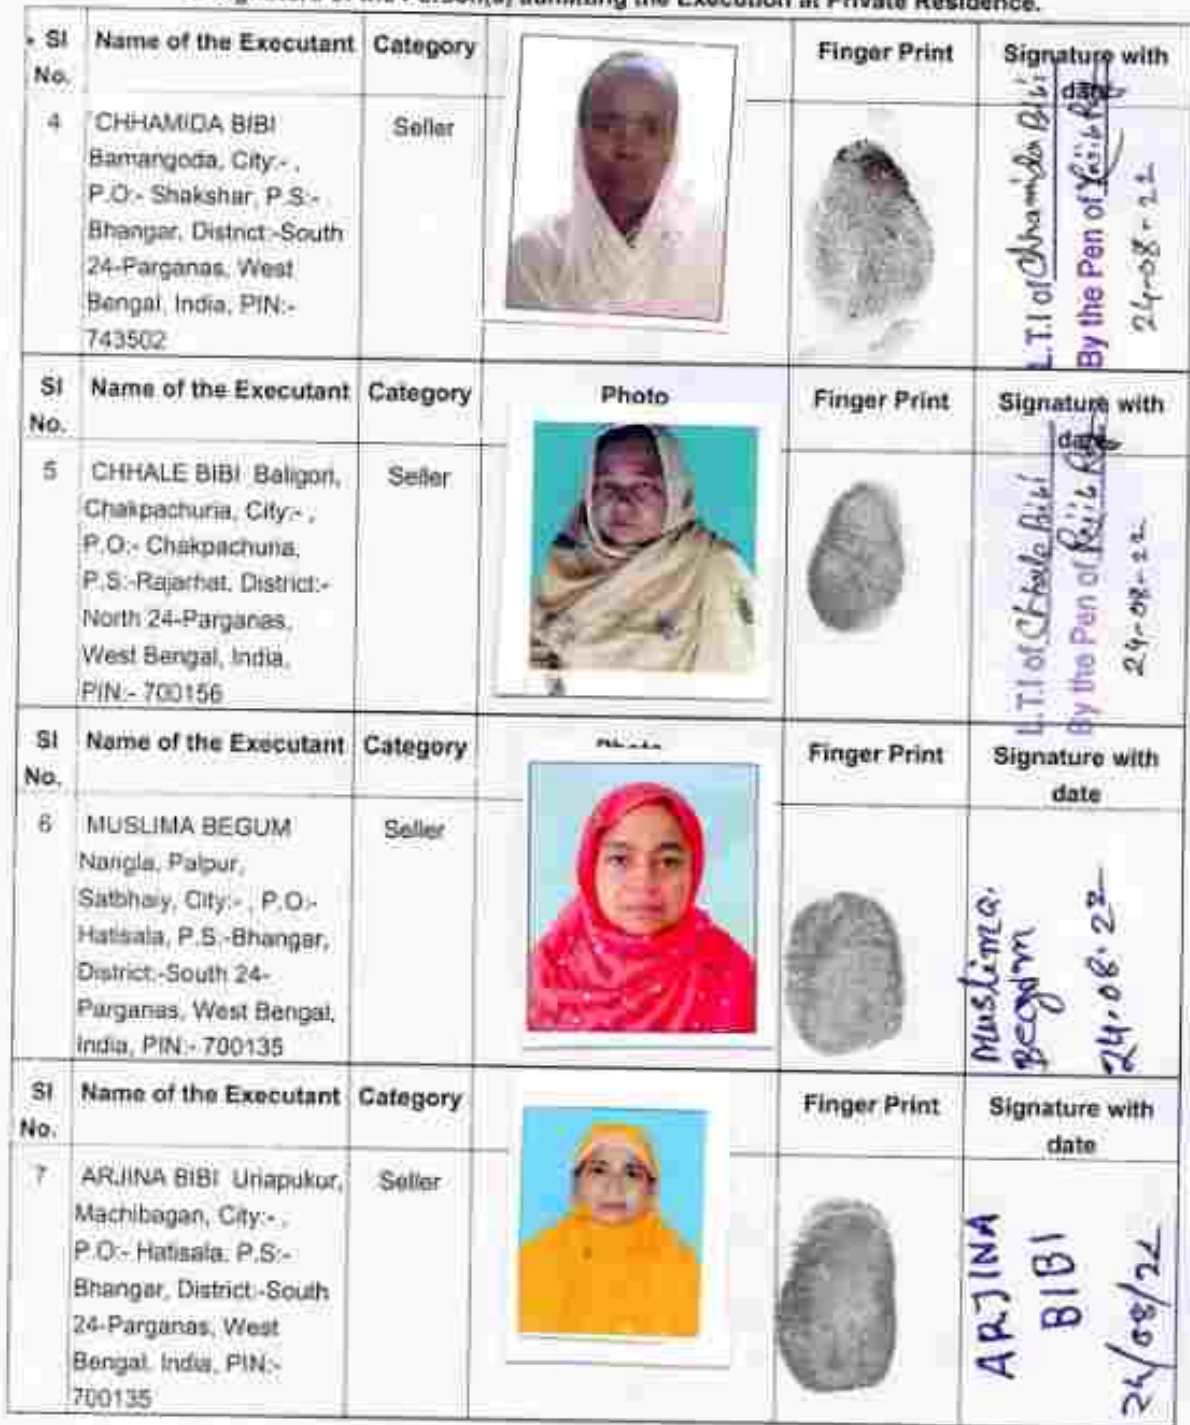 Signature of the Person(s) admitting the Execution at Private Residence.
Sl No. Name of the Executant Category Finger Print Signature with date
4 CHHAMIDA BIBI Seller
Bamangoda, City:- ,
P.O:- Shakshar, P.S:-
Bhangar, District:-South
24-Parganas, West
Bengal, India, PIN:-
743502
L.T.I of Chhamida Bibi
By the Pen of
24-08-22
Sl No. Name of the Executant Category Photo Finger Print Signature with date
5 CHHALE BIBI Baligori, Seller
Chakpachuria, City:- ,
P.O:- Chakpachuria,
P.S:-Rajarhat, District:-
North 24-Parganas,
West Bengal, India,
PIN:- 700156
L.T.I of Chhale Bibi
By the Pen of
24-08-22
Sl No. Name of the Executant Category Photo Finger Print Signature with date
6 MUSLIMA BEGUM Seller
Nangla, Palpur,
Satbhaiy, City:- , P.O:-
Hatisala, P.S:-Bhangar,
District:-South 24-
Parganas, West Bengal,
India, PIN:- 700135
Muslima.
Begum
24.08.22
Sl No. Name of the Executant Category Finger Print Signature with date
7 ARJINA BIBI Uriapukur, Seller
Machibagan, City:- ,
P.O:- Hatisala, P.S:-
Bhangar, District:-South
24-Parganas, West
Bengal, India, PIN:-
700135
ARJINA
BIBI
24/08/22